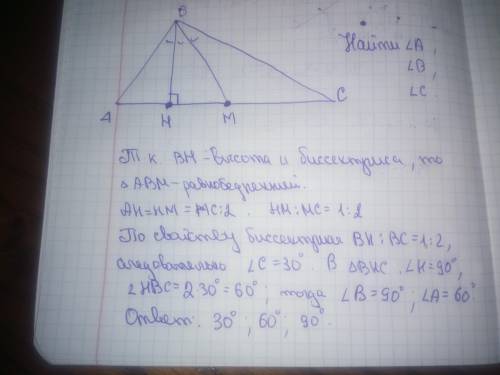 B
Найти ∠A,
∠B,
∠C
A H M C
Т.к. BH - высота и биссектриса, то
△ABM - равнобедренный.
AH=HM=MC:2. HM:MC=1:2
По свойству биссектрисы BH:BC=1:2,
следовательно ∠C=30°. В △BHC ∠H=90°,
∠HBC=2·30°=60°; тогда ∠B=90°; ∠A=60°
Ответ: 30°; 60°; 90°.